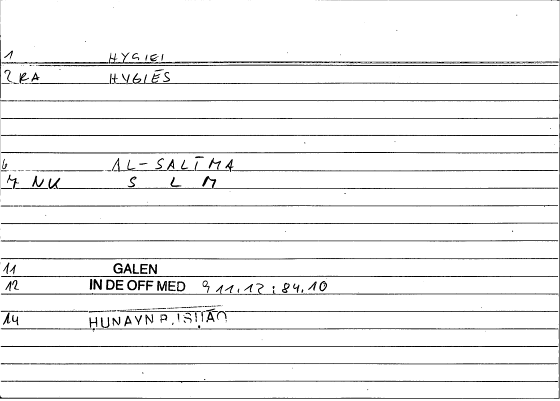 1 HYGIEI
2 RA HYGIĒS
6 AL-SALĪMA
7 NK S L M
11 GALEN
12 IN DE OFF MED 911.12:84.10
14 ḤUNAYN B. ISḤĀQ